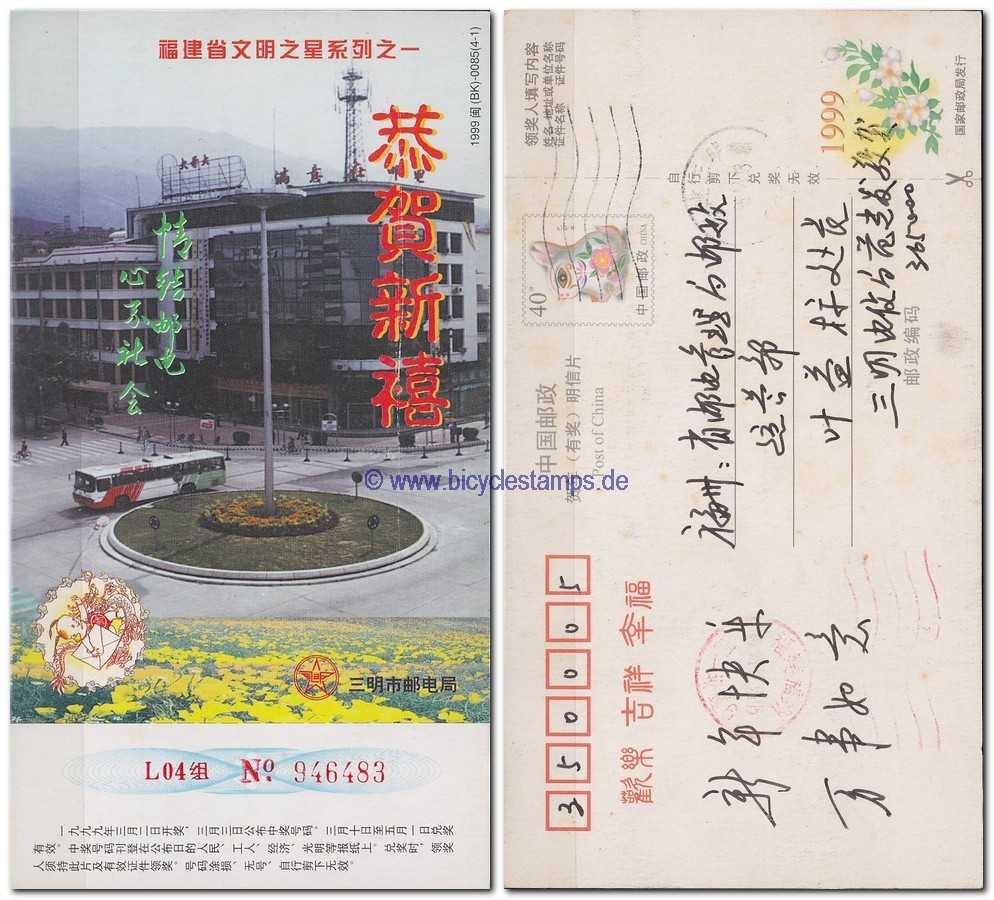 福建省文明之星系列之一
1999 闽 (BK)-0085(4-1)
恭賀新禧
情结邮电
心系社会
三明市邮电局
L04组 No 946483
一九九九年三月二日开奖，三月三日公布中奖号码。三月十日至五月一日兑奖
有效。中奖号码刊登在公布日的人民、工人、经济、光明等报纸上。兑奖时，领奖
人须持此片及有效证件领奖。号码涂损、无号、自行剪下无效。
© www.bicyclestamps.de
领奖人填写内容
姓名 地址或单位名称
证件名称 证件号码
自行剪下兑奖无效
1999
国家邮政局发行
40分
中国邮政 CHINA
中国邮政
贺年（有奖）明信片
Post of China
350005
歡樂 吉祥 幸福
福州：省邮电管理局邮政
运营部
叶益林处长
三明邮政局范志发敬贺
365000
邮政编码
新年快乐
万事如意